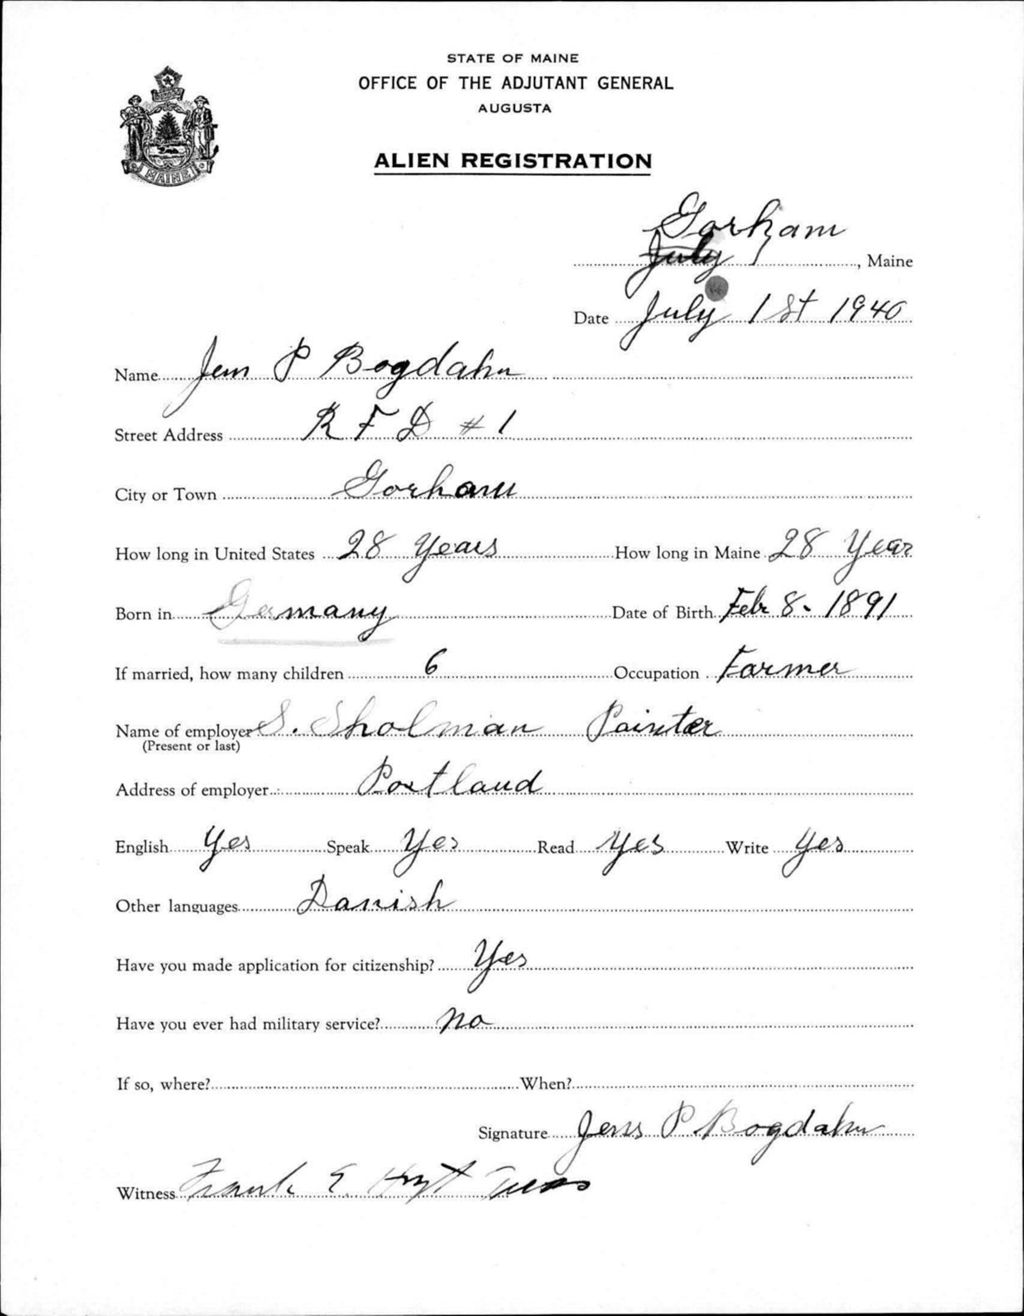 STATE OF MAINE
OFFICE OF THE ADJUTANT GENERAL
AUGUSTA
MAINE
ALIEN REGISTRATION
Gorham
July, Maine
Date July 1st 1940
Name Jens P Bogdahn
Street Address R F D #1
City or Town Gorham
How long in United States 28 Years How long in Maine 28 Year
Born in Germany Date of Birth Feb 8. 1891
If married, how many children 6 Occupation Farmer
Name of employer S. Sholman Painter
(Present or last)
Address of employer Portland
English Yes Speak Yes Read Yes Write Yes
Other languages Danish
Have you made application for citizenship? Yes
Have you ever had military service? no
If so, where? When?
Signature Jens P Bogdahn
Witness Frank E. Hoyt